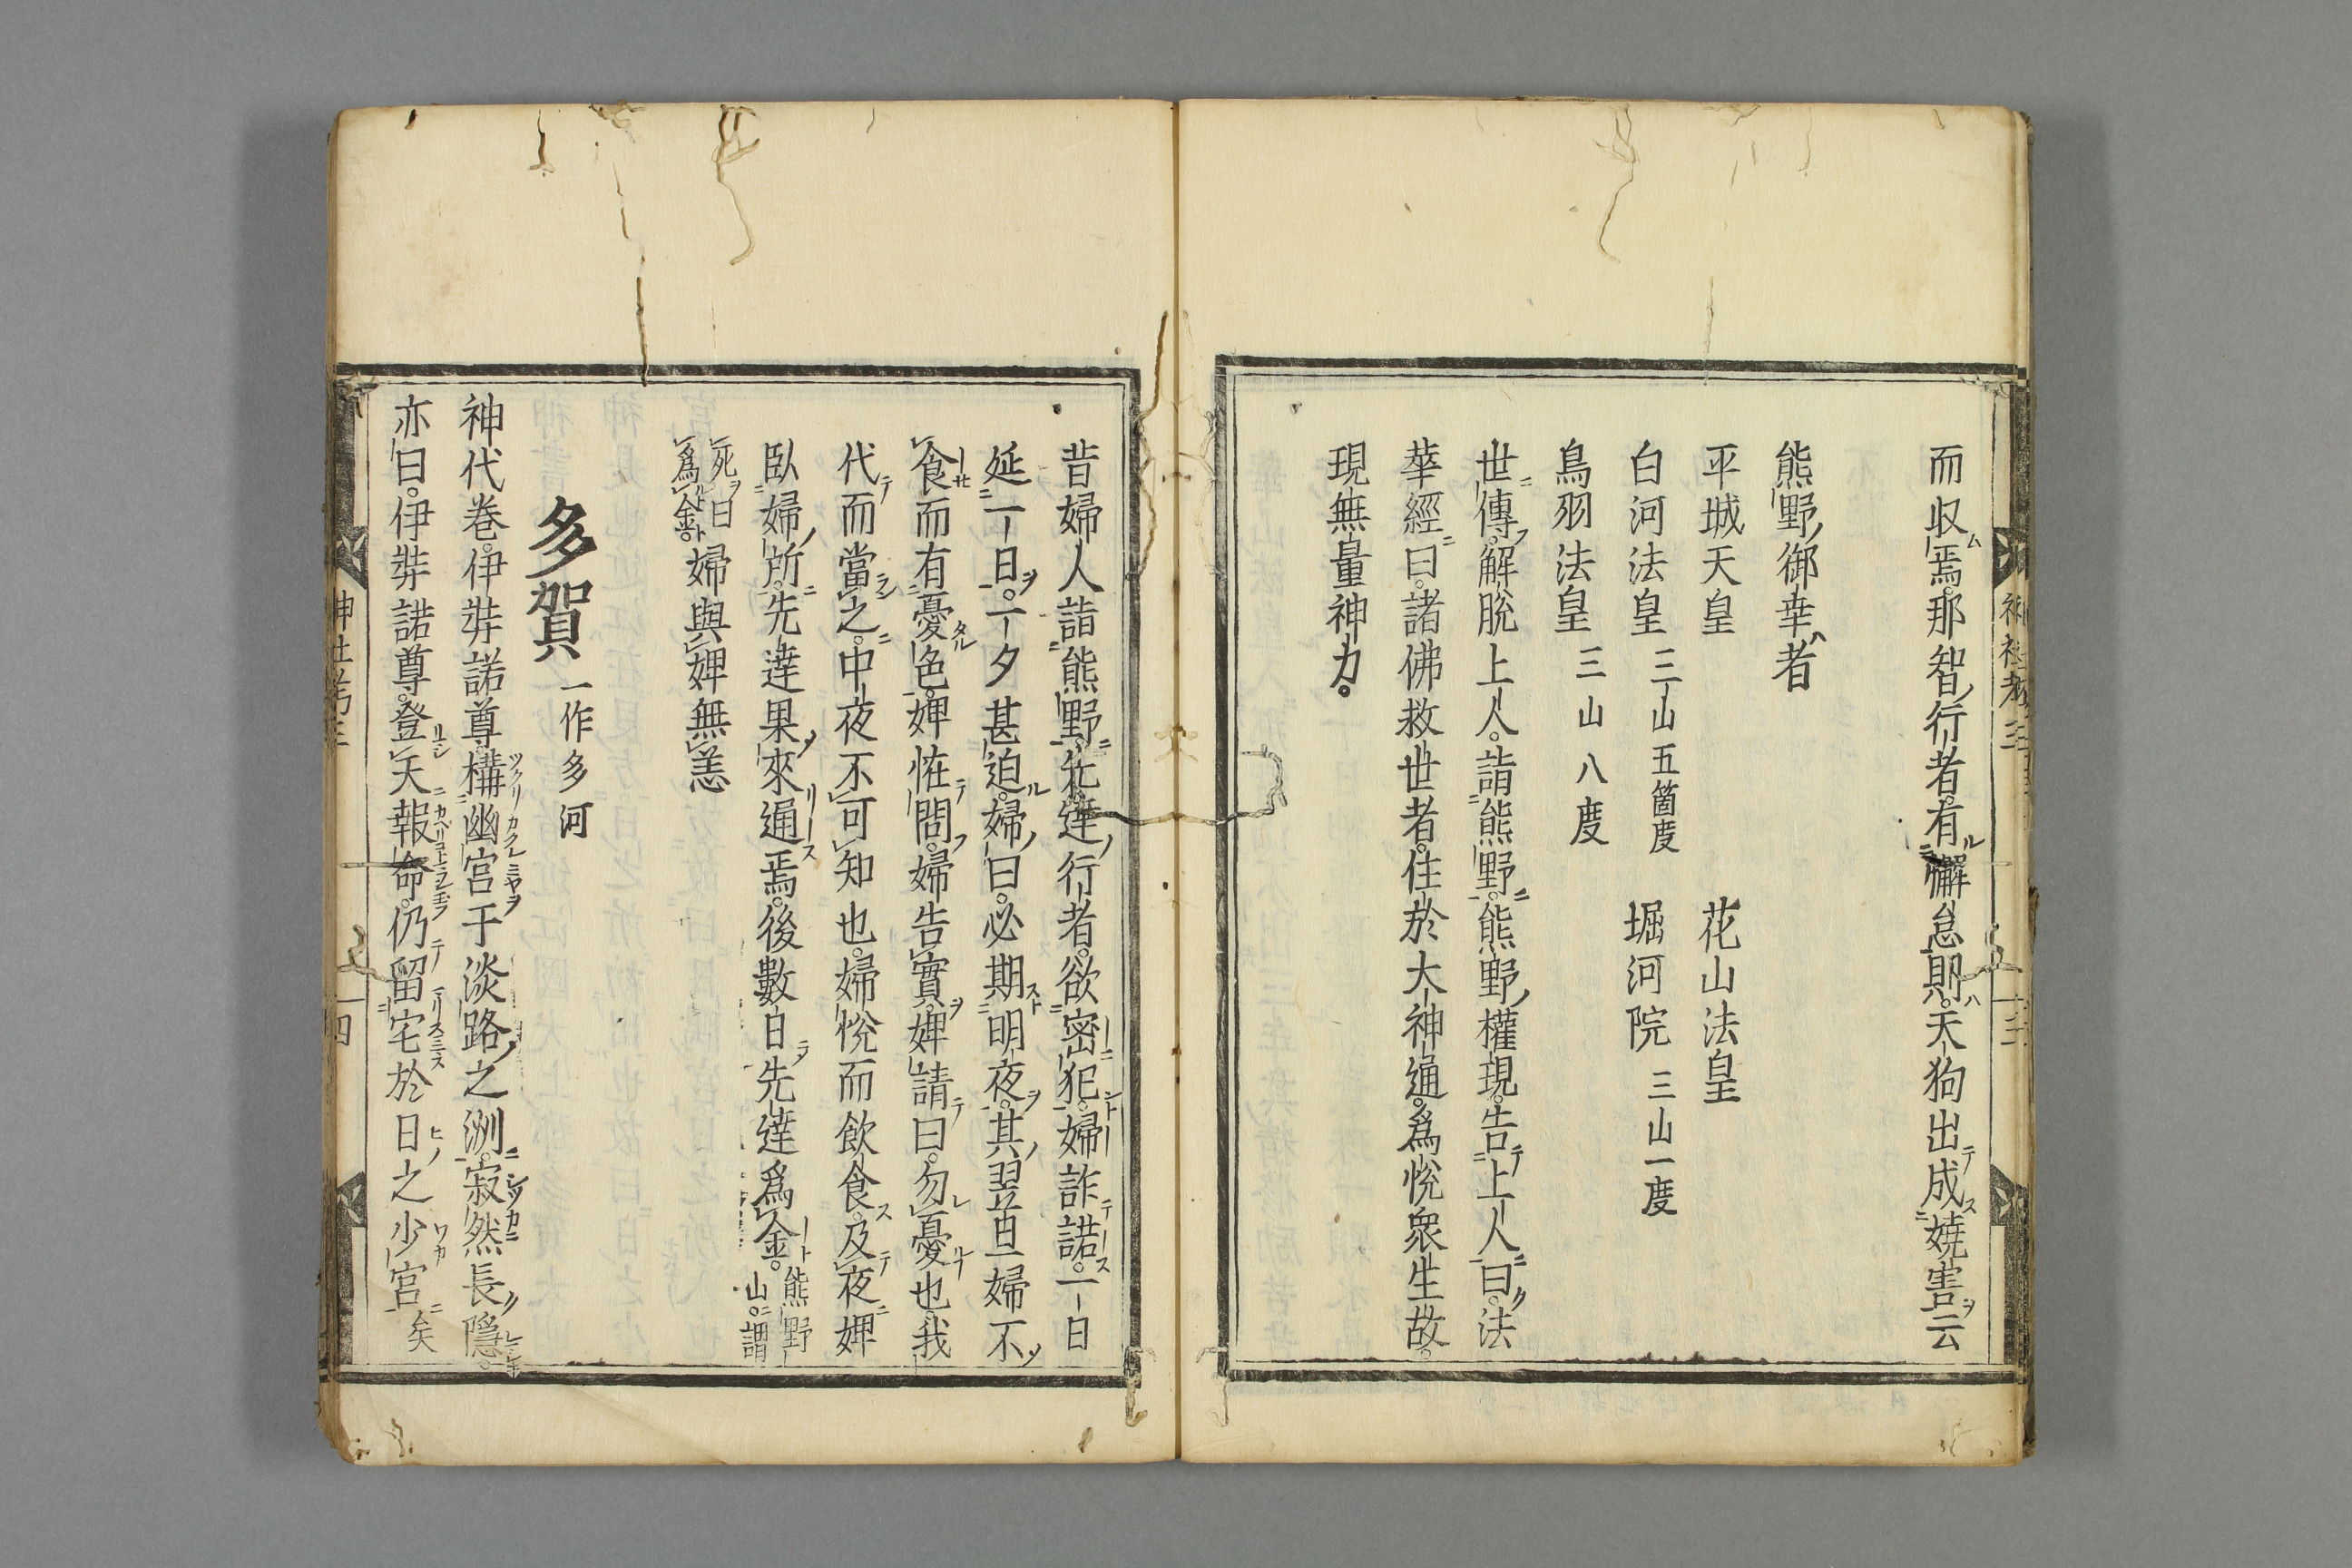 而収焉。那智行者。有懈怠則。天狗出成嬈害云
熊野御幸者
平城天皇　花山法皇
白河法皇　三山五箇度　堀河院　三山一度
鳥羽法皇　三山八度
世傳。解脱上人。詣熊野。熊野權現。告上人曰。法
華經曰。諸佛救世者。住於大神通。爲悅衆生故。
現無量神力。
昔婦人詣熊野。先達行者。欲密犯。婦詐諾。一日
延一日。一夕甚迫。婦曰。必期明夜。其翌旦婦不
食而有憂色。婢恠問。婦告實。婢請曰。勿憂也。我
代而當之。中夜不可知也。婦悅而飲食。及夜婢
臥婦所。先達果來通焉。後數日先達爲金。熊野山。謂
死曰爲金。婦與婢無恙
多賀　一作多河
神代卷。伊弉諾尊。構幽宮于淡路之洲。寂然長隱。
亦曰。伊弉諾尊。登天報命。仍留宅於日之少宮矣